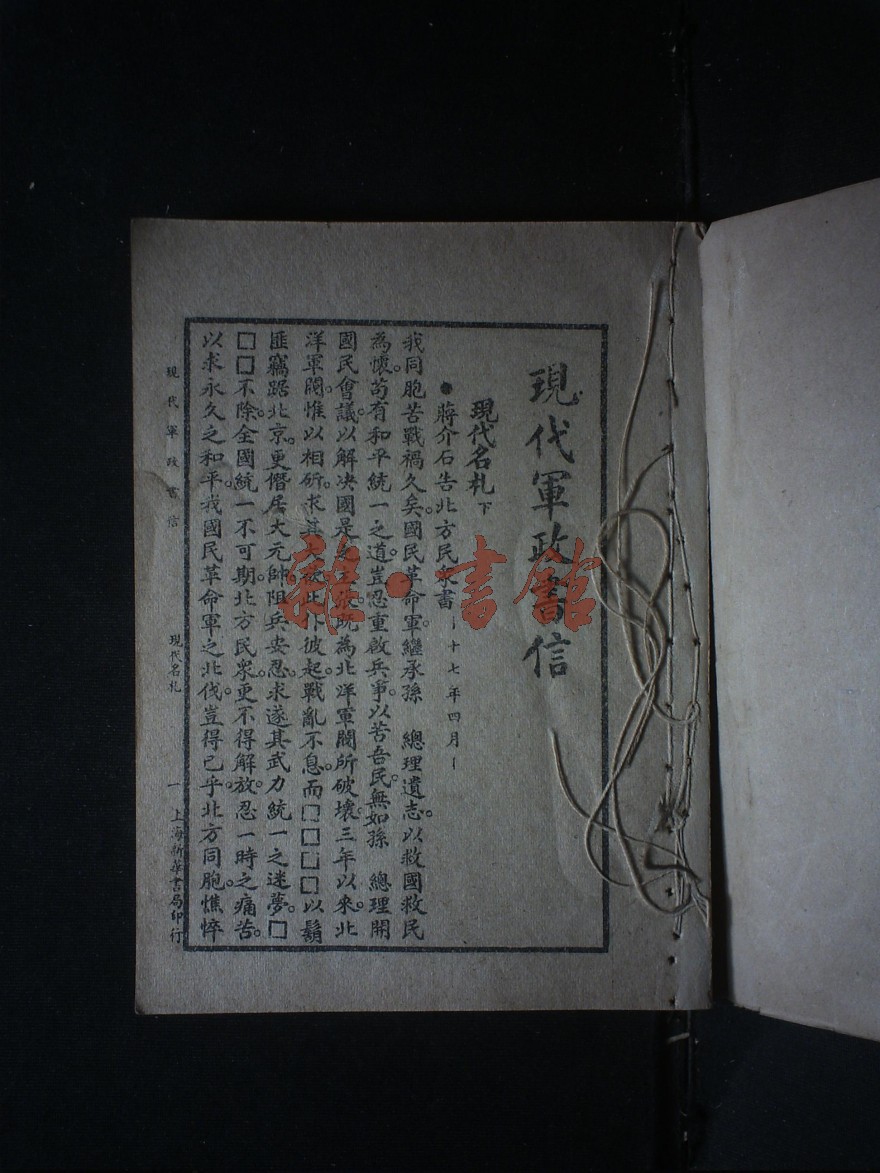 現代軍政書信
現代名札 下
●蔣介石告北方民衆書 —十七年四月—
我同胞苦戰禍久矣。國民革命軍繼承孫 總理遺志。以救國救民
為懷。苟有和平統一之道。豈忍重啟兵爭。以苦吾民。無如孫 總理開
國民會議。以解決國是之主張。既為北洋軍閥所破壞。三年以來。北
洋軍閥惟以相斫。求其大欲。此仆彼起。戰亂不息。而□□□□以鬍
匪竊踞北京。更僭居大元帥。阻兵安忍。求遂其武力統一之迷夢。□
□□不除。全國統一不可期。北方民衆。更不得解放。忍一時之痛苦。
以求永久之和平。我國民革命軍之北伐。豈得已乎。北方同胞。憔悴
現代軍政書信 現代名札 一 上海新華書局印行
雜·書館